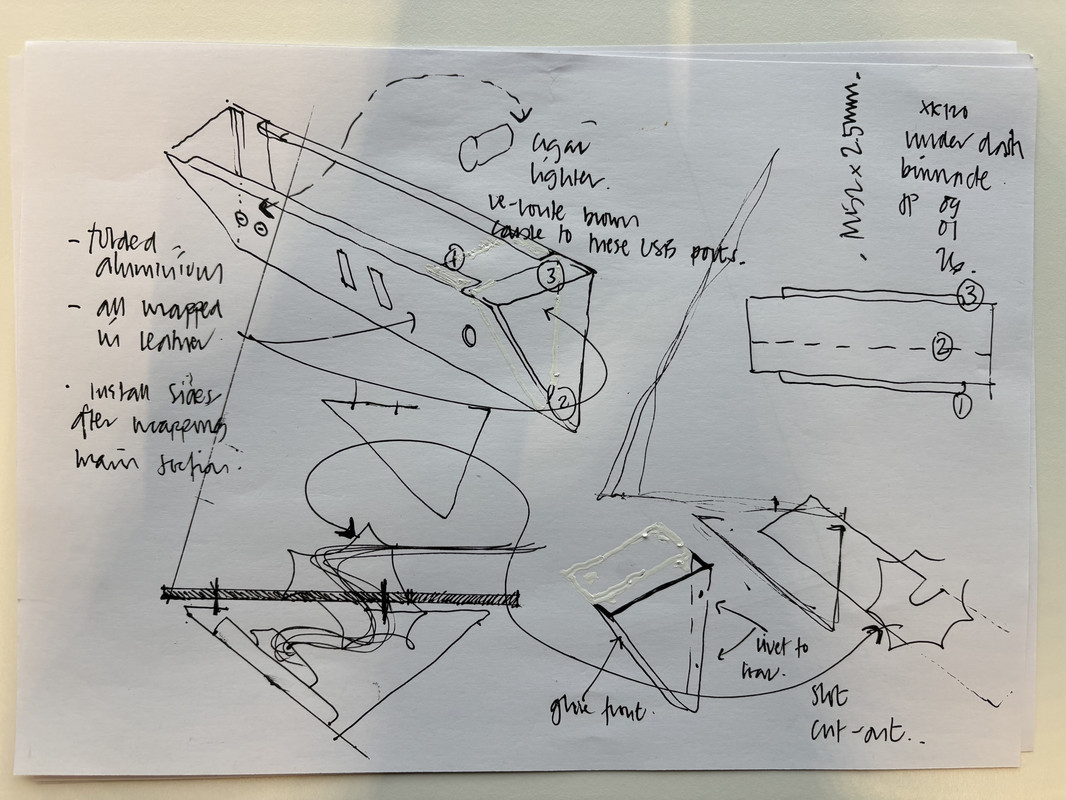 cigar
lighter.
re-route brown
cable to these USB ports.
M52 x 2.5mm.
XK120
under dash
binnacle.
JP 09
01
26.
- folded
aluminium
- all wrapped
in leather.
· install sides
after wrapping
main section.
1
3
2
3
2
1
rivet to
glove front.
slot
cut-out..